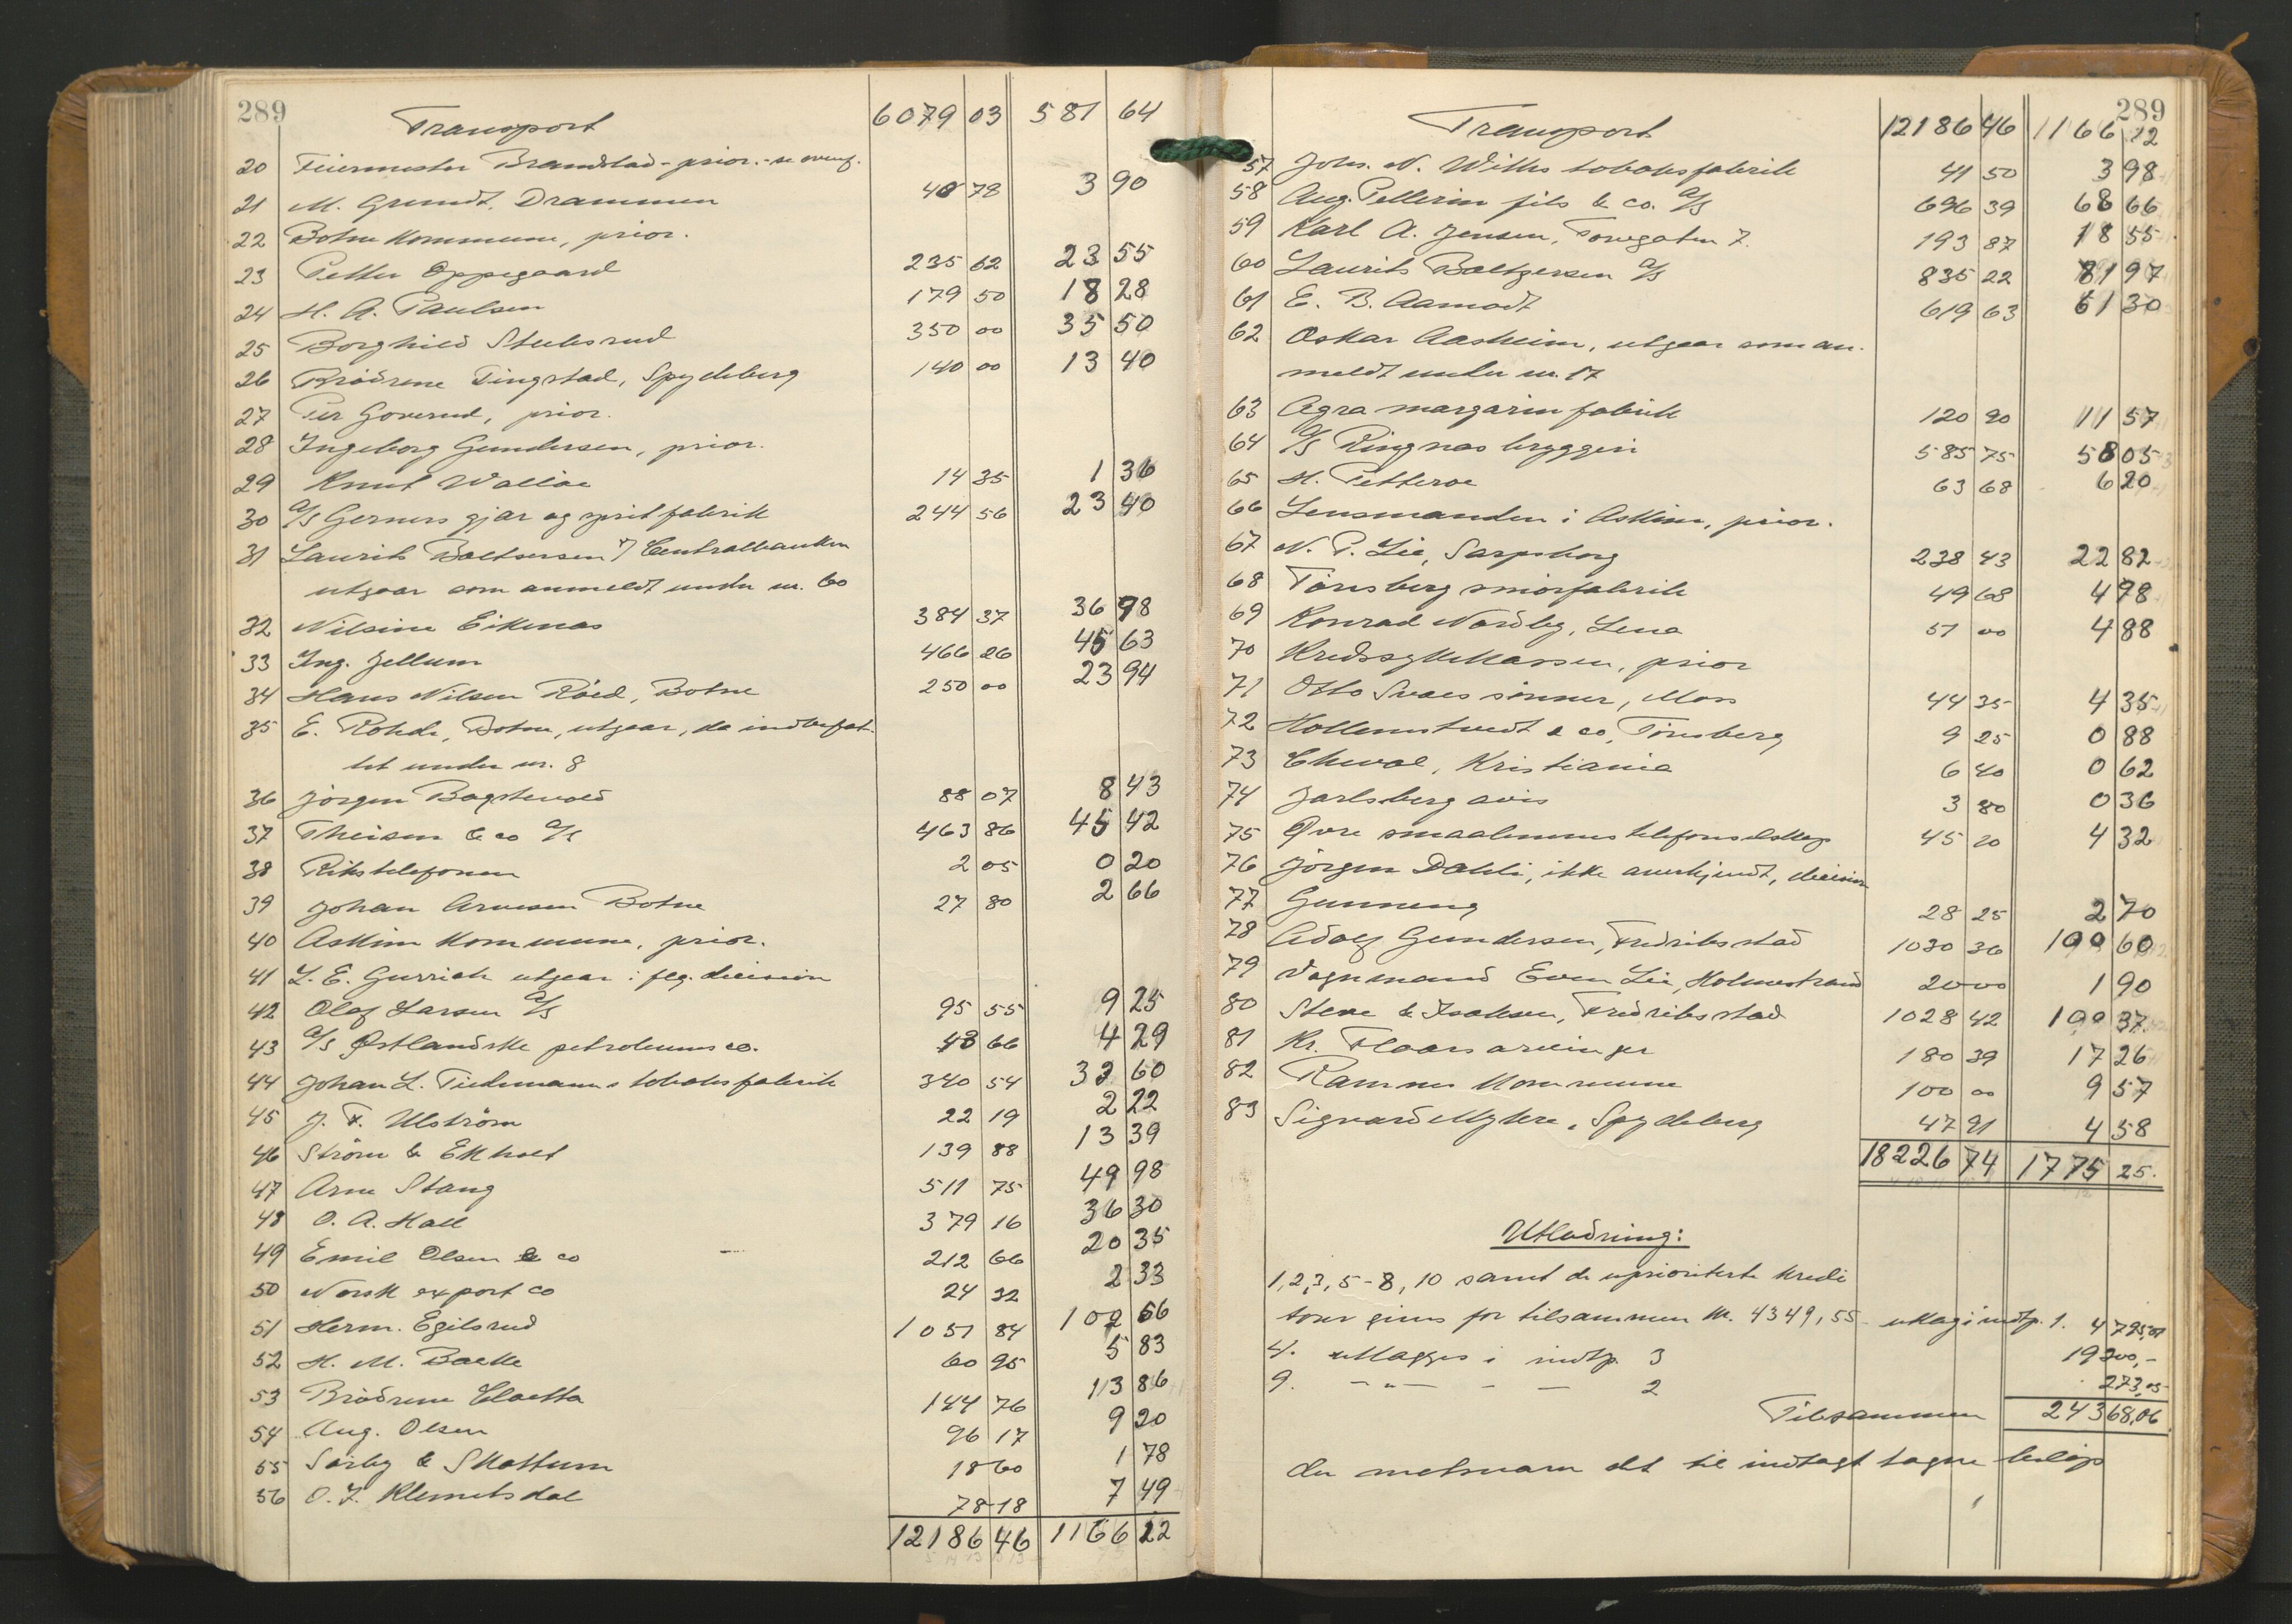 289
Transport 6079 03 581 64
20 Feiermester Brandstad - prior. - se ovenf.
21 M. Grundt, Drammen 40 78 3 90
22 Botne kommune, prior.
23 Petter Oppegaard 235 62 23 55
24 H. A. Paulsen 179 50 18 28
25 Borghild Stubsrud 350 00 35 50
26 Brødrene Tingstad, Spydeberg 140 00 13 40
27 Per Goverud, prior.
28 Ingeborg Gundersen, prior.
29 Knut Walløe 14 35 1 36
30 A/S Gerners gjær og spritfabrik 244 56 23 40
31 Laurits Baltsersen / Centralbanken
utgaar som anmeldt under nr. 60
32 Nilsine Eiknas 384 37 36 98
33 Ing. Jellum 466 26 45 63
34 Hans Nilsen Røed, Botne 250 00 23 94
35 E. Rohde, Botne, utgaar, da indbefat-
tet under nr. 8
36 Jørgen Bagstevold 88 07 8 43
37 Theisen & co A/S 463 86 45 42
38 Rikstelefonen 2 05 0 20
39 Johan Arnesen Botne 27 80 2 66
40 Askim kommune, prior.
41 L. E. Gurrich utgaar i flg. decision
42 Olaf Larsen A/S 95 55 9 25
43 A/S Østlandske petroleumsco. 43 66 4 29
44 Johan L. Tiedemanns tobaksfabrik 340 54 32 60
45 J. F. Ulstrøm 22 19 2 22
46 Strøm & Ekholt 139 88 13 39
47 Arne Stang 511 75 49 98
48 O. A. Hall 379 16 36 30
49 Emil Olsen & co 212 66 20 35
50 Norsk export co 24 32 2 33
51 Herm. Egilsrud 1051 84 102 66
52 H. M. Bakke 60 95 5 83
53 Brødrene Cloetta 144 76 13 86
54 Aug. Olsen 96 17 9 20
55 Sørby & Skattum 18 60 1 78
56 O. J. Klemetsdal 78 18 7 49
12186 46 1166 22
289
Transport 12186 46 1166 22
57 Johs. N. Withs tobaksfabrik 41 50 3 98
58 Aug. Pellerin fils & co. A/S 696 39 68 66
59 Karl A. Jensen, Torvgaten 7. 193 87 18 55
60 Laurits Baltzersen A/S 835 22 81 97
61 E. B. Aamodt 619 63 61 30
62 Oskar Aasheim, utgaar som an-
meldt under nr. 17
63 Agra margarinfabrik 120 90 11 57
64 A/S Ringnæs bryggeri 585 75 58 05
65 H. Petterøe 63 68 6 20
66 Lensmanden i Askim, prior.
67 N. P. Lie, Sarpsborg 238 43 22 82
68 Tønsberg smørfabrik 49 68 4 78
69 Konrad Nordby, Lena 51 00 4 88
70 Kredssykekassen, prior
71 Otto Svaes sønner, Moss 44 35 4 35
72 Hollenstvedt & co, Tønsberg 9 25 0 88
73 Cheval, Kristiania 6 40 0 62
74 Jarlsberg avis 3 80 0 36
75 Øvre smaalenenes telefonselskap 45 20 4 32
76 Jørgen Dahli, ikke anerkjendt, decision
77 Gunneng 28 25 2 70
78 Adolf Gundersen, Fredriksstad 1030 36 100 60
79 Vognmand Even Lie, Holmestrand 20 00 1 90
80 Stene & Isaksen, Fredriksstad 1028 42 100 37
81 Kr. Floors arvinger 180 39 17 26
82 Ramnes kommune 100 00 9 57
83 Sigvard Myhre, Spydeberg 47 91 4 58
18226 74 1775 25.
Utlodning:
1, 2, 3, 5-8, 10 samt de uprioriterte kredi
torer gives for tilsammen kr. 4349,55 utlag i indtp. 1. 4795,01
4. utlægges i indtp. 3 19300,-
9. - " - - - 2 273,05
Tilsammen 24368,06
der motsvarer det til indtægt tagne beløp